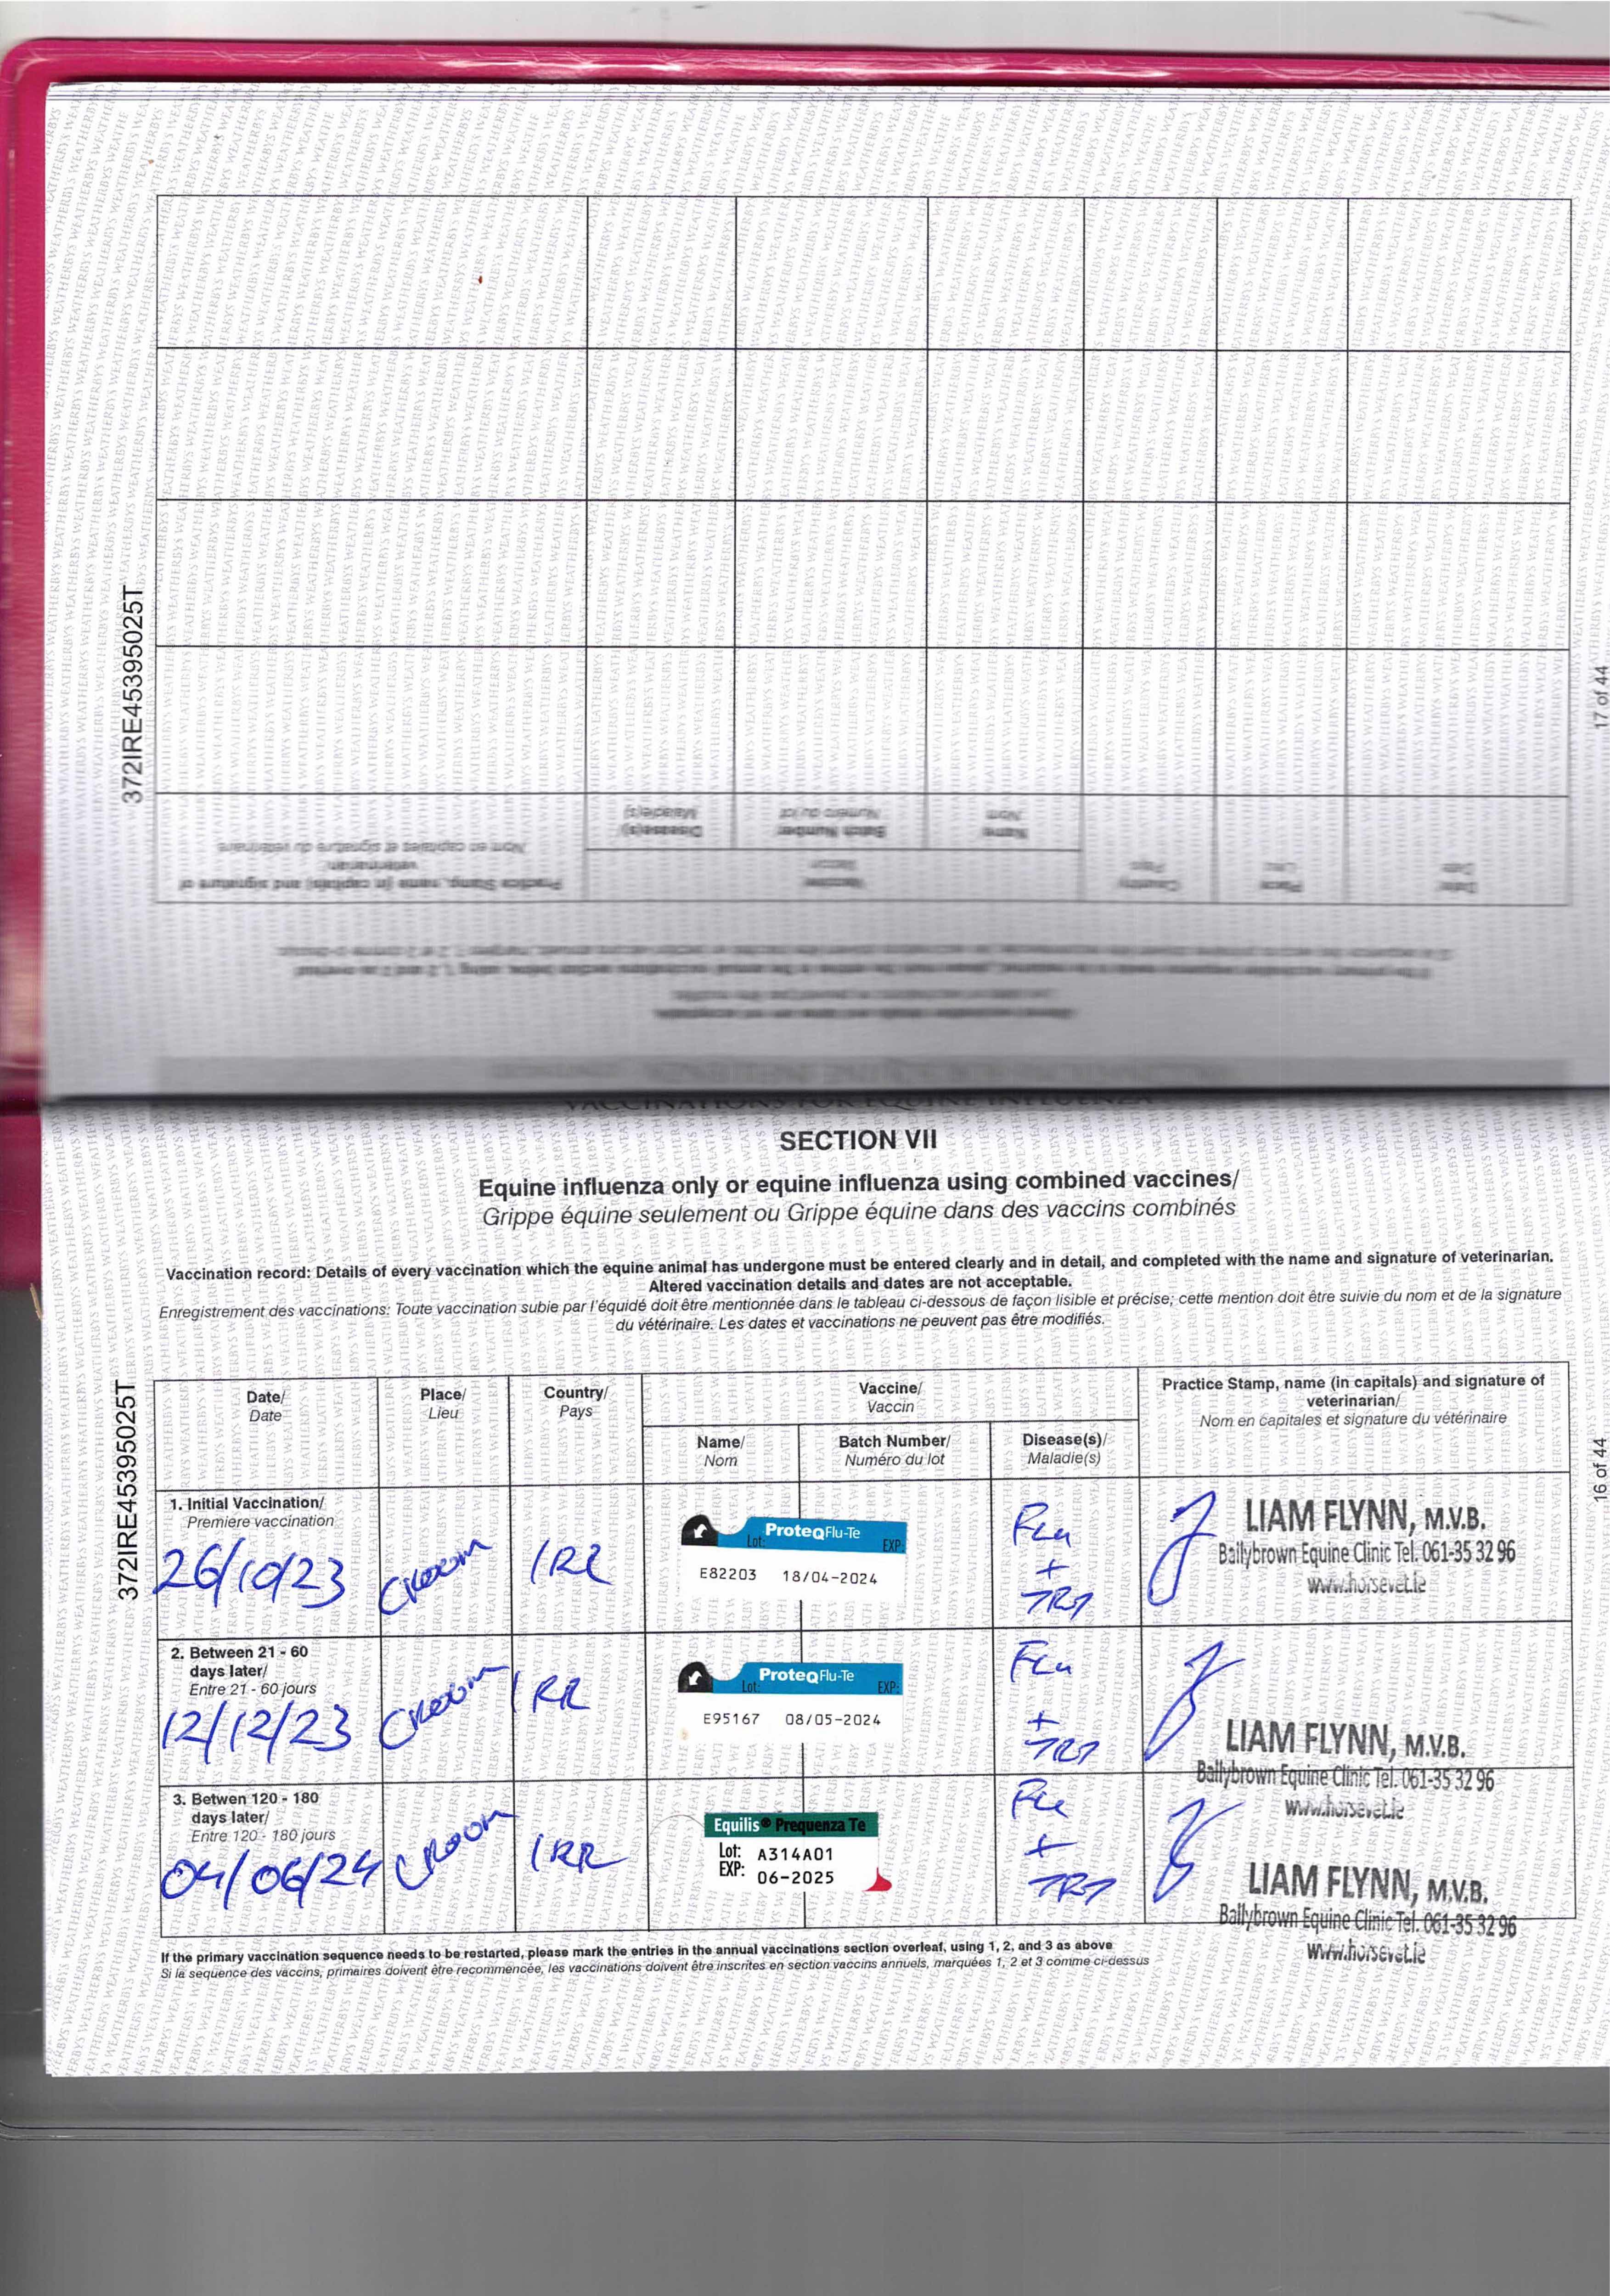 372IRE45395025T
17 of 44
Maladie(s)
Disease(s)/
Numéro du lot
Batch Number/
Nom
Name/
Nom en capitales et signature du vétérinaire
veterinarian/
Practice Stamp, name (in capitals) and signature of
Vaccin
Vaccine/
Pays
Country/
Lieu
Place/
Date
Date/
VACCINATIONS FOR EQUINE INFLUENZA
SECTION VII
Equine influenza only or equine influenza using combined vaccines/
Grippe équine seulement ou Grippe équine dans des vaccins combinés
Vaccination record: Details of every vaccination which the equine animal has undergone must be entered clearly and in detail, and completed with the name and signature of veterinarian.
Altered vaccination details and dates are not acceptable.
Enregistrement des vaccinations: Toute vaccination subie par l'équidé doit être mentionnée dans le tableau ci-dessous de façon lisible et précise; cette mention doit être suivie du nom et de la signature
du vétérinaire. Les dates et vaccinations ne peuvent pas être modifiés.
372IRE45395025T
16 of 44
Date/
Date
Place/
Lieu
Country/
Pays
Vaccine/
Vaccin
Practice Stamp, name (in capitals) and signature of
veterinarian/
Nom en capitales et signature du vétérinaire
Name/
Nom
Batch Number/
Numéro du lot
Disease(s)/
Maladie(s)
1. Initial Vaccination/
Premiere vaccination
26/10/23
CROOM
IRE
ProteqFlu-Te
Lot: EXP:
E82203 18/04-2024
Flu
+
TET
LIAM FLYNN, M.V.B.
Ballybrown Equine Clinic Tel. 061-35 32 96
www.horsevet.ie
2. Between 21 - 60
days later/
Entre 21 - 60 jours
12/12/23
CROOM
IRE
ProteqFlu-Te
Lot: EXP:
E95167 08/05-2024
Flu
+
TET
LIAM FLYNN, M.V.B.
Ballybrown Equine Clinic Tel. 061-35 32 96
www.horsevet.ie
3. Betwen 120 - 180
days later/
Entre 120 - 180 jours
04/06/24
CROOM
IRE
Equilis® Prequenza Te
Lot: A314A01
EXP: 06-2025
Flu
+
TET
LIAM FLYNN, M.V.B.
Ballybrown Equine Clinic Tel. 061-35 32 96
www.horsevet.ie
If the primary vaccination sequence needs to be restarted, please mark the entries in the annual vaccinations section overleaf, using 1, 2, and 3 as above
Si la sequence des vaccins, primaires doivent être recommencée, les vaccinations doivent être inscrites en section vaccins annuels, marquées 1, 2 et 3 comme ci-dessus